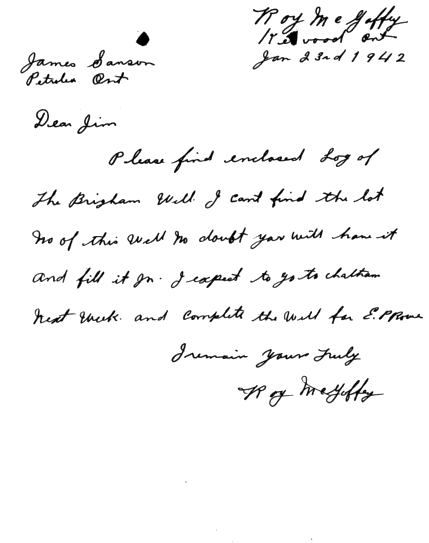 Roy McGaffey
Inwood Ont
Jan 23rd 1942
James Sanson
Petrolea Ont
Dear Jim
Please find enclosed Log of
The Brigham Well. I cant find the lot
No of this Well No doubt you will have it
And fill it In. I expect to go to chatham
Next Week. and Complete the Well for E.P Rowe
I remain Yours Truly
Roy McGaffey